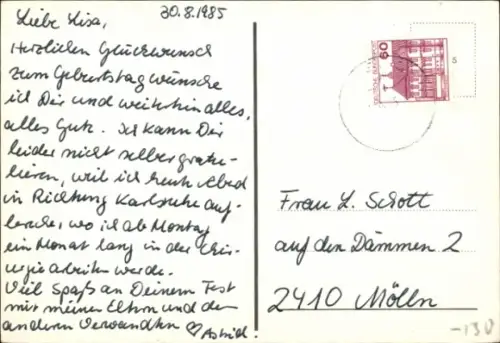 30.8.1985
Liebe Lisa,
Herzlichen Glückwunsch
zum Geburtstag wünsche
ich Dir und weiterhin alles,
alles Gute. Ich kann Dir
leider nicht selber gratu-
lieren, weil ich heute Abend
in Richtung Karlsruhe auf-
breche, wo ich ab Montag
ein Monat lang in der Chir-
urgie arbeiten werde.
Viel Spaß an Deinem Fest
mit meinen Eltern und den
anderen Verwandten
Astrid.
60
DEUTSCHE BUNDESPOST
S
Frau L. Schott
auf den Dämmen 2
2410 Mölln
-130